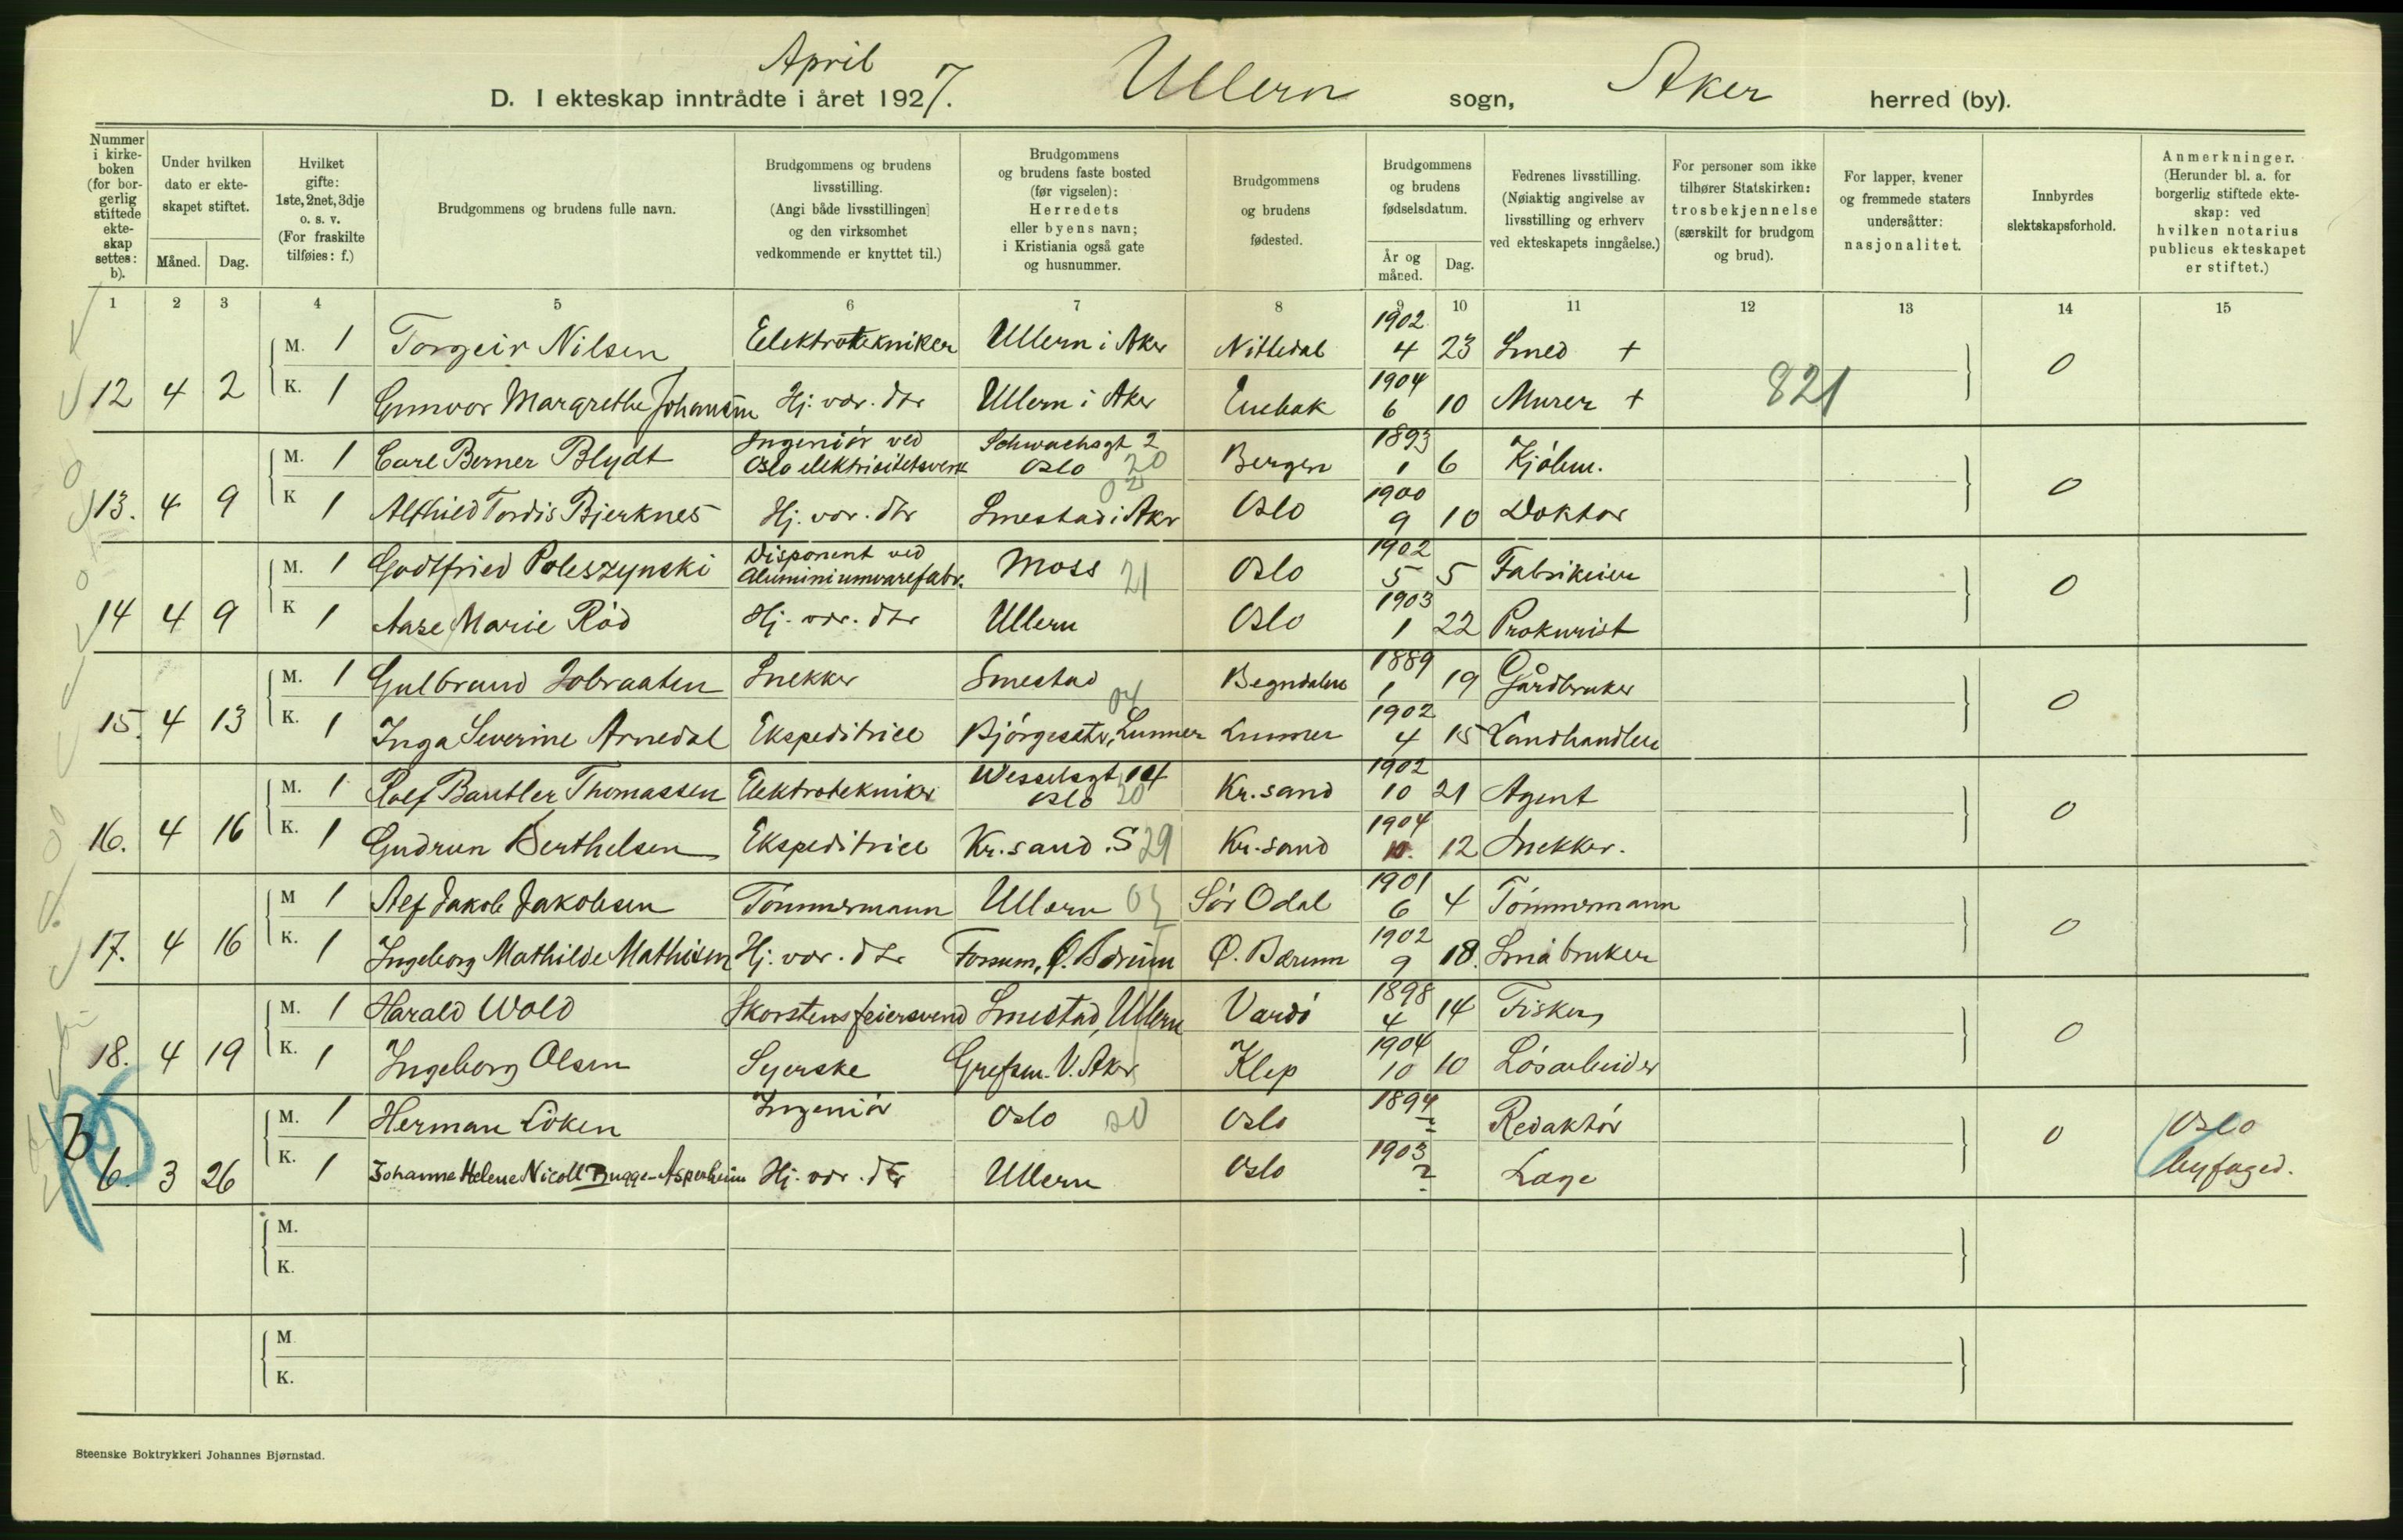 April
D. I ekteskap inntrådte i året 1927. Ullern sogn, Aker herred (by).
Nummer i kirke-boken (for bor-gerlig stiftede ekte-skap settes: b).
Under hvilken dato er ekte-skapet stiftet.
Måned. Dag.
Hvilket gifte: 1ste, 2net, 3dje o. s. v. (For fraskilte tilføies: f.)
Brudgommens og brudens fulle navn.
Brudgommens og brudens livsstilling. (Angi både livsstillingen og den virksomhet vedkommende er knyttet til.)
Brudgommens og brudens faste bosted (før vigselen): Herredets eller byens navn; i Kristiania også gate og husnummer.
Brudgommens og brudens fødested.
Brudgommens og brudens fødselsdatum.
År og måned. Dag.
Fedrenes livsstilling. (Nøiaktig angivelse av livsstilling og erhverv ved ekteskapets inngåelse.)
For personer som ikke tilhører Statskirken: trosbekjennelse (særskilt for brudgom og brud).
For lapper, kvener og fremmede staters undersåtter: nasjonalitet.
Innbyrdes slektskapsforhold.
Anmerkninger. (Herunder bl. a. for borgerlig stiftede ekte-skap: ved hvilken notarius publicus ekteskapet er stiftet.)
1 2 3 4 5 6 7 8 9 10 11 12 13 14 15
M. 1 Torgeir Nilsen Eelektrotekniker Ullern i Aker Nittedal 1902 4 23 Smed + 0
12 4 2 K. 1 Gunvor Margrethe Johansen Hj. vær. dtr Ullern i Aker Enebak 1904 6 10 Murer + 821
M. 1 Carl Berner Blydt Ingeniör ved Oslo elektricitetsverk Schwachsgt 2 Oslo 20 Bergen 1893 1 6 Kjöbm. 0
13. 4 9 K 1 Alfhild Tordis Bjerknes Hj. vær. dtr Smestad i Akr Oslo 1900 9 10 Doktor
M. 1 Godtfried Poleszynski Disponent ved Aluminiumvarefabr. Moss 21 Oslo 1902 5 5 Fabrikeier 0
14 4 9 K 1 Aase Marie Röd Hj. vær. dtr Ullern Oslo 1903 1 22 Prokurist
M. 1 Gulbrand Sobraaten Snekker Smestad Begndalen 1889 1 19 Gårdbruker 0
15. 4 13 K. 1 Inga Severine Arnedal Ekspeditrice Björgesetr, Lunner 04 Lunner 1902 4 15 Landhandler
M. 1 Rolf Bantler Thomassen Elektrotekniker Wesselsgt 14 Oslo 20 Kr.sand 1902 10 21 Agent 0
16. 4 16 K. 1 Gudrun Berthelsen Ekspeditrice Kr.sand .S 29 Kr.sand 1904 10. 12 Snekker.
M 1 Alf Jakob Jakobsen Tömmermann Ullern 02 Sör Odal 1901 6 4 Tömmermann 0
17. 4 16 K. 1 Ingeborg Mathilde Mathisen Hj. vær. dtr Fossum, Ö. Bærum Ö. Bærum 1902 9 18. Småbruker
M. 1 Harald Wold Skorstensfeiersvend Smestad, Ullern Vardö 1898 4 14 Fisker 0
18. 4 19 K. 1 Ingeborg Olsen Syerske Grefsen. V. Aker Klep 1904 10 10 Lösarbeider
M. 1 Herman Löken Ingeniör Oslo 20 Oslo 1894 ? Redaktör 0 Oslo
B 6. 3 26 K. 1 Johanne Helene Nicoll Bugge-Asperheim Hj. vær. dtr Ullern Oslo 1903 ? Læge byfoged.
M.
K.
M
K.
Steenske Boktrykkeri Johannes Bjørnstad.